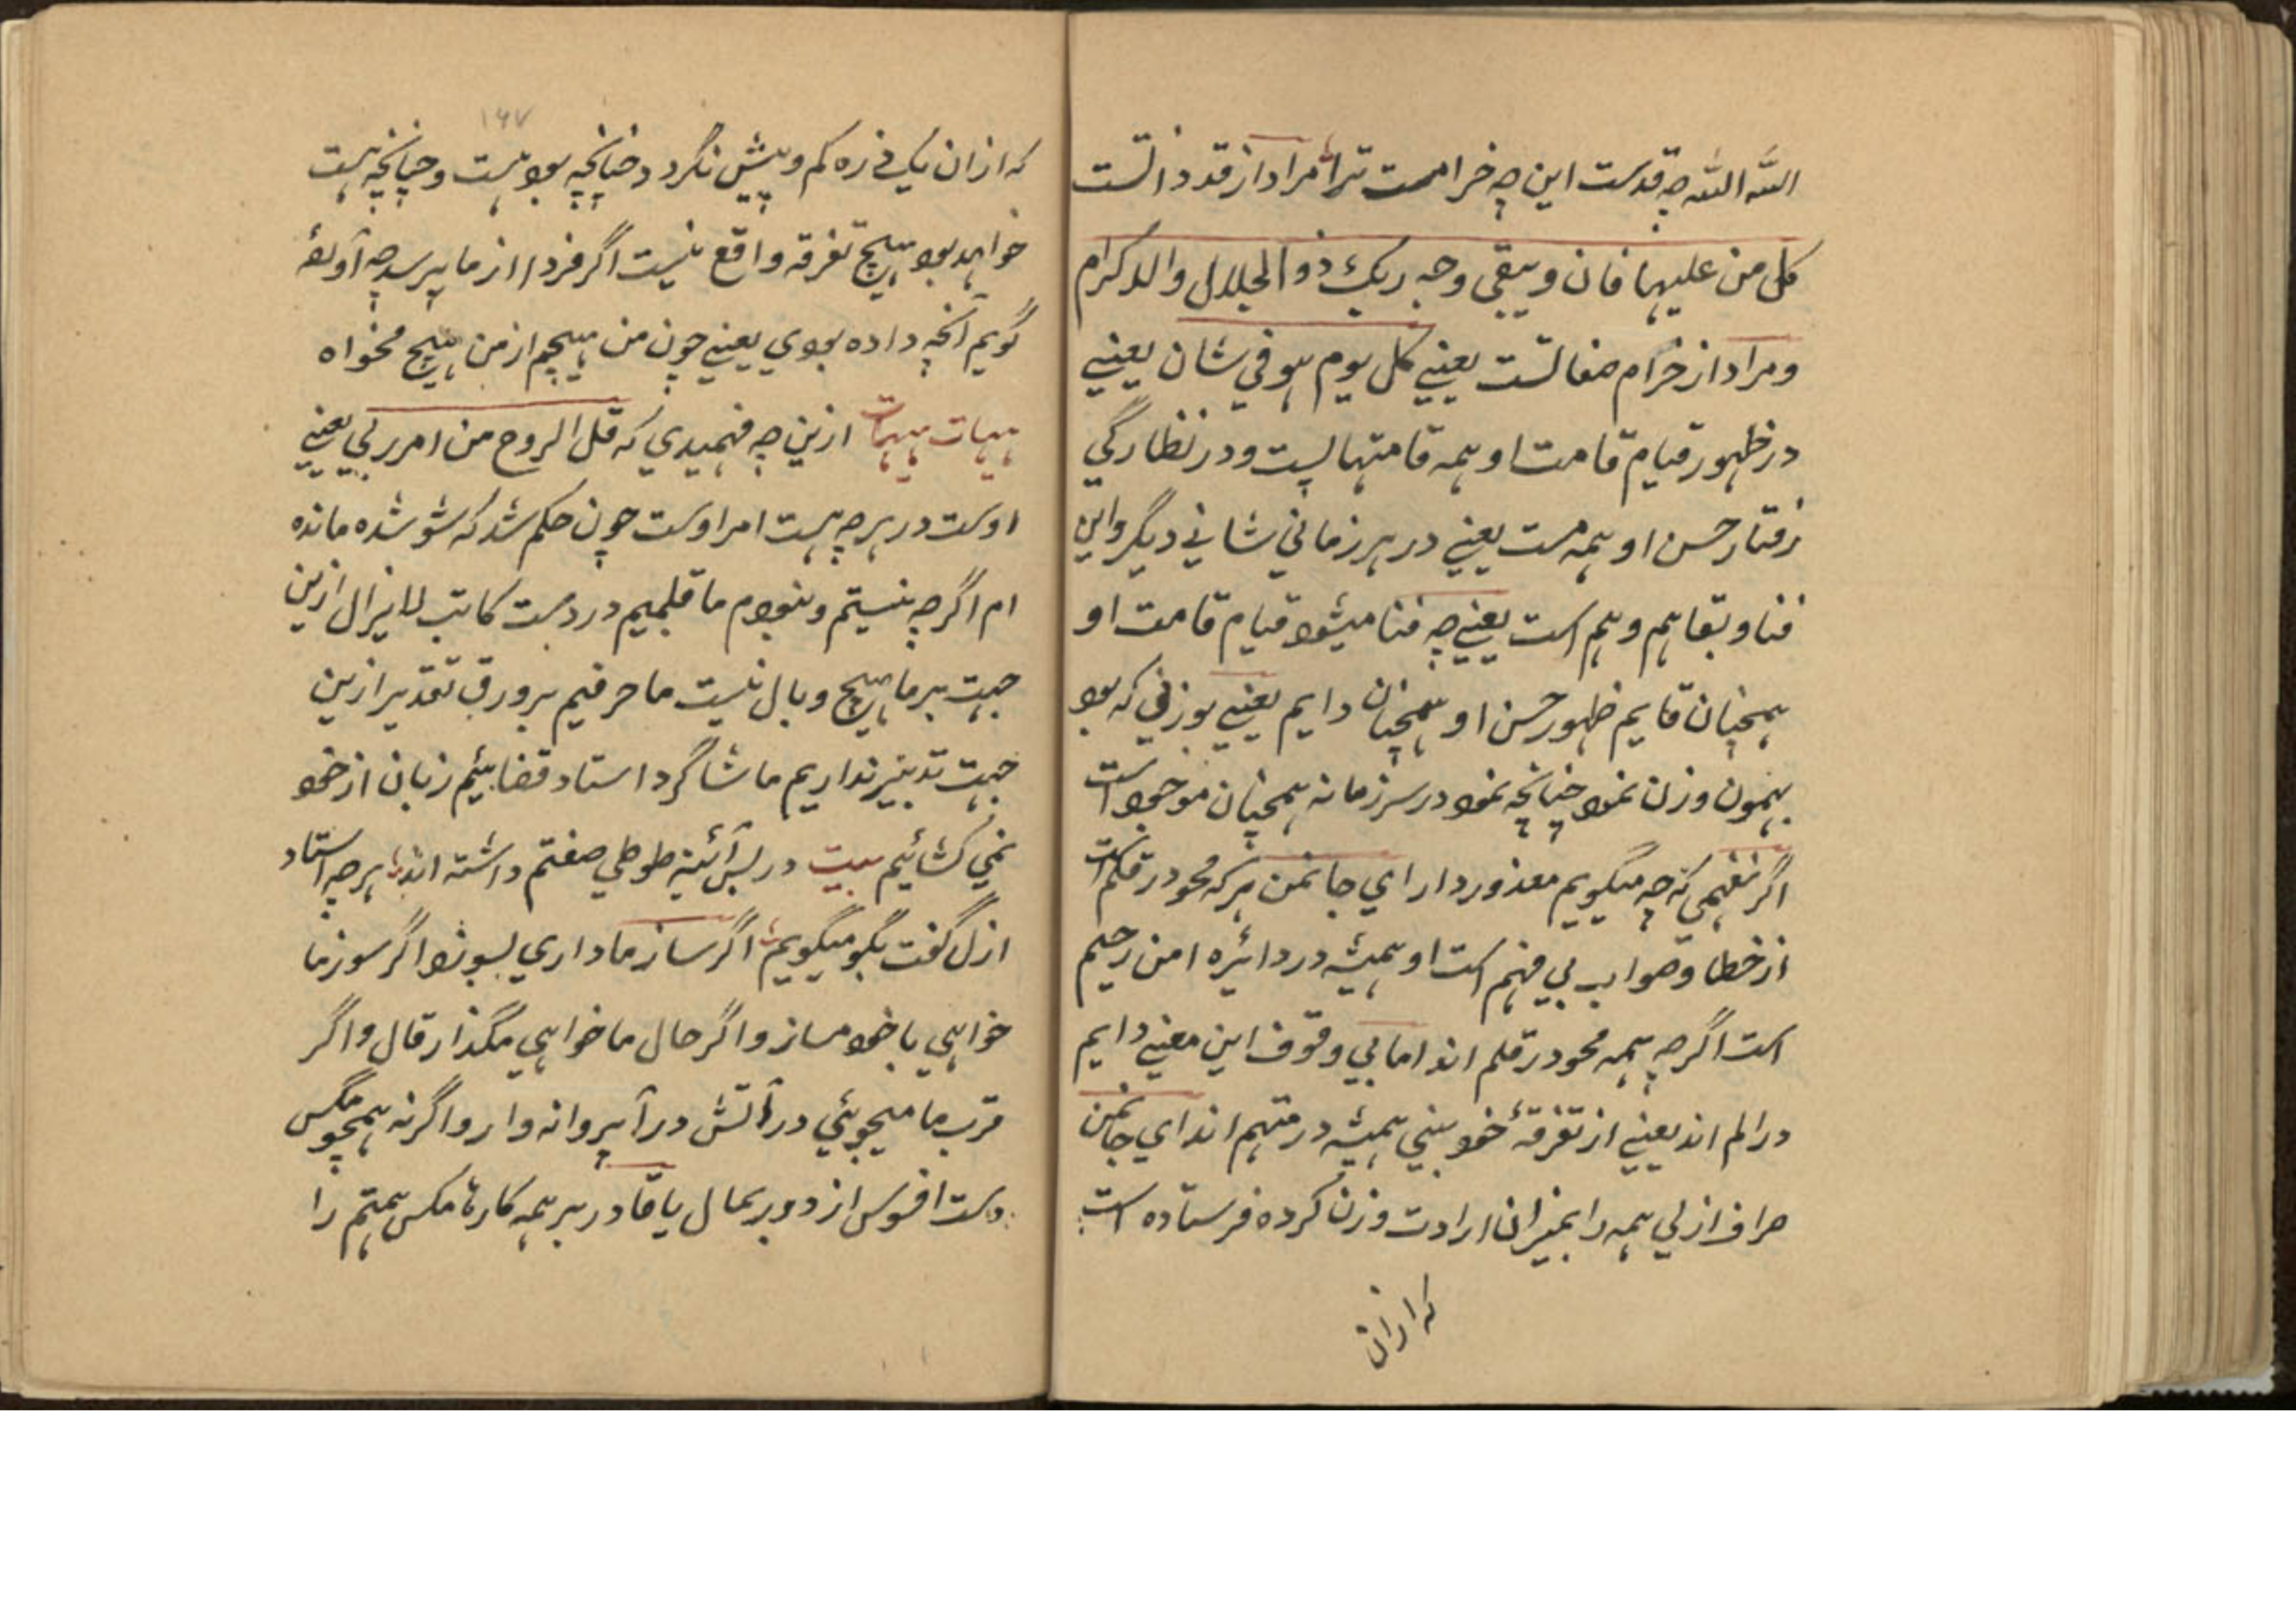 الله الله چه قدست این چه خرامست ترا مراد از قد ذاتست
کل من علیها فان ویبقی وجه ربک ذو الجلال والاکرام
ومراد از خرام صفاتست یعنی کل یوم هو فی شان یعنی
در ظهور قیام قامت او همه قامتها پست ودر نظارگی
رفتار حسن او همه مست یعنی در هر زمانی شانی دیگر واین
فنا وبقا هم وهم است یعنی چه فنا میشود قیام قامت او
همچنان قایم ظهور حسن او همچنان دایم یعنی بوزنی که بود
بهمون وزن نمود چنانچه نمود در سر زمانه همچنان موجود است
اگر نفهمی که چه میگویم معذور دار ای جانمن هر که محو در قلم است
از خطا وصواب بی فهم است او همیشه در دائره امن رحیم
است اگرچه همه محو در قلم اند اما بی وقوف این معنی دایم
در الم اند یعنی از تفرقهٔ خود بینی همیشه در متهم اند ای جانمن
صراف ازلی همه را بمیزان ارادت وزن کرده فرستاده است
که ازان
۱۶۷
که ازان یک ذره کم وبیش نگردد چنانچه بود هست وچنانچه هست
خواهد بود هیچ تفرقه واقع نیست اگر فردا از ما بپرسد چه آوردهٔ
گویم آنچه داده بودی یعنی چون من هیچم از من هیچ مخواه
هیهات هیهات ازین چه فهمیدی که قل الروح من امر ربی یعنی
اوست در هر چه هست امر اوست چون حکم شد که شو شده مانده
ام اگرچه نیستم ونبودم ما قلمیم در دست کاتب لایزال ازین
جهت بر ما هیچ وبال نیست ما حرفیم بر ورق تقدیر ازین
جهت تدبیر نداریم ما شاگرد استاد قضاییم زبان از خود
نمی کشائیم بیت در پس آئینه طوطی صفتم داشته اند هر چه استاد
ازل گفت بگو میگویم اگر ساز ما داری بسوز واگر سوز ما
خواهی با خود مساز واگر حال ما خواهی مگذار قال واگر
قرب ما میجوئی در آتش در آ پروانه وار واگر نه همچو مگس
دست افسوس از دور بمال یا قادر بر همه کارها مگس همتم را